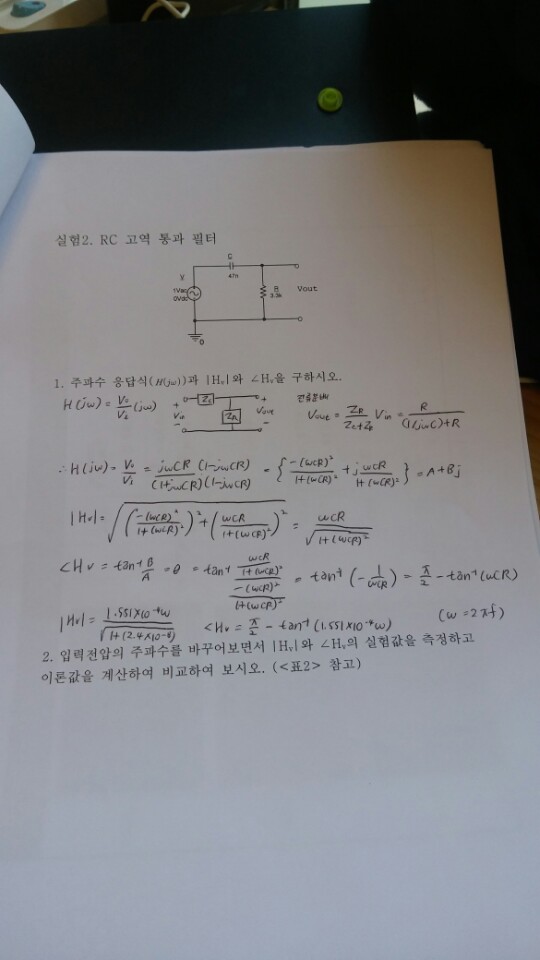 실험2. RC 고역 통과 필터
C
47n
V
1Vac
0Vdc
R
3.3k
Vout
0
1. 주파수 응답식(H(jw))과 |Hᵥ|와 ∠Hᵥ을 구하시오.
H(jω) = V₀/Vᵢ (jω) + Vin - Zc ZR + Vout - 전압분배 Vout = ZR/(Zc+ZR) Vin = R/((1/jωC)+R)
∴ H(jω) = V₀/Vᵢ = jωCR (1-jωCR)/((1+jωCR)(1-jωCR)) = { -(ωCR)²/(1+(ωCR)²) + j ωCR/(1+(ωCR)²) } = A+Bj
|Hv| = √((-(ωCR)²/(1+(ωCR)²))² + (ωCR/(1+(ωCR)²))²) = ωCR/√(1+(ωCR)²)
<Hv = tan⁻¹ B/A = θ = tan⁻¹ (ωCR/(1+(ωCR)²))/(-(ωCR)²/(1+(ωCR)²)) = tan⁻¹(-1/ωCR) = π/2 - tan⁻¹(ωCR)
|Hv| = 1.551×10⁻⁴ω/√(1+(2.4×10⁻⁸)) <Hv = π/2 - tan⁻¹(1.551×10⁻⁴ω) (ω = 2πf)
2. 입력전압의 주파수를 바꾸어보면서 |Hᵥ|와 ∠Hᵥ의 실험값을 측정하고
이론값을 계산하여 비교하여 보시오. (<표2> 참고)